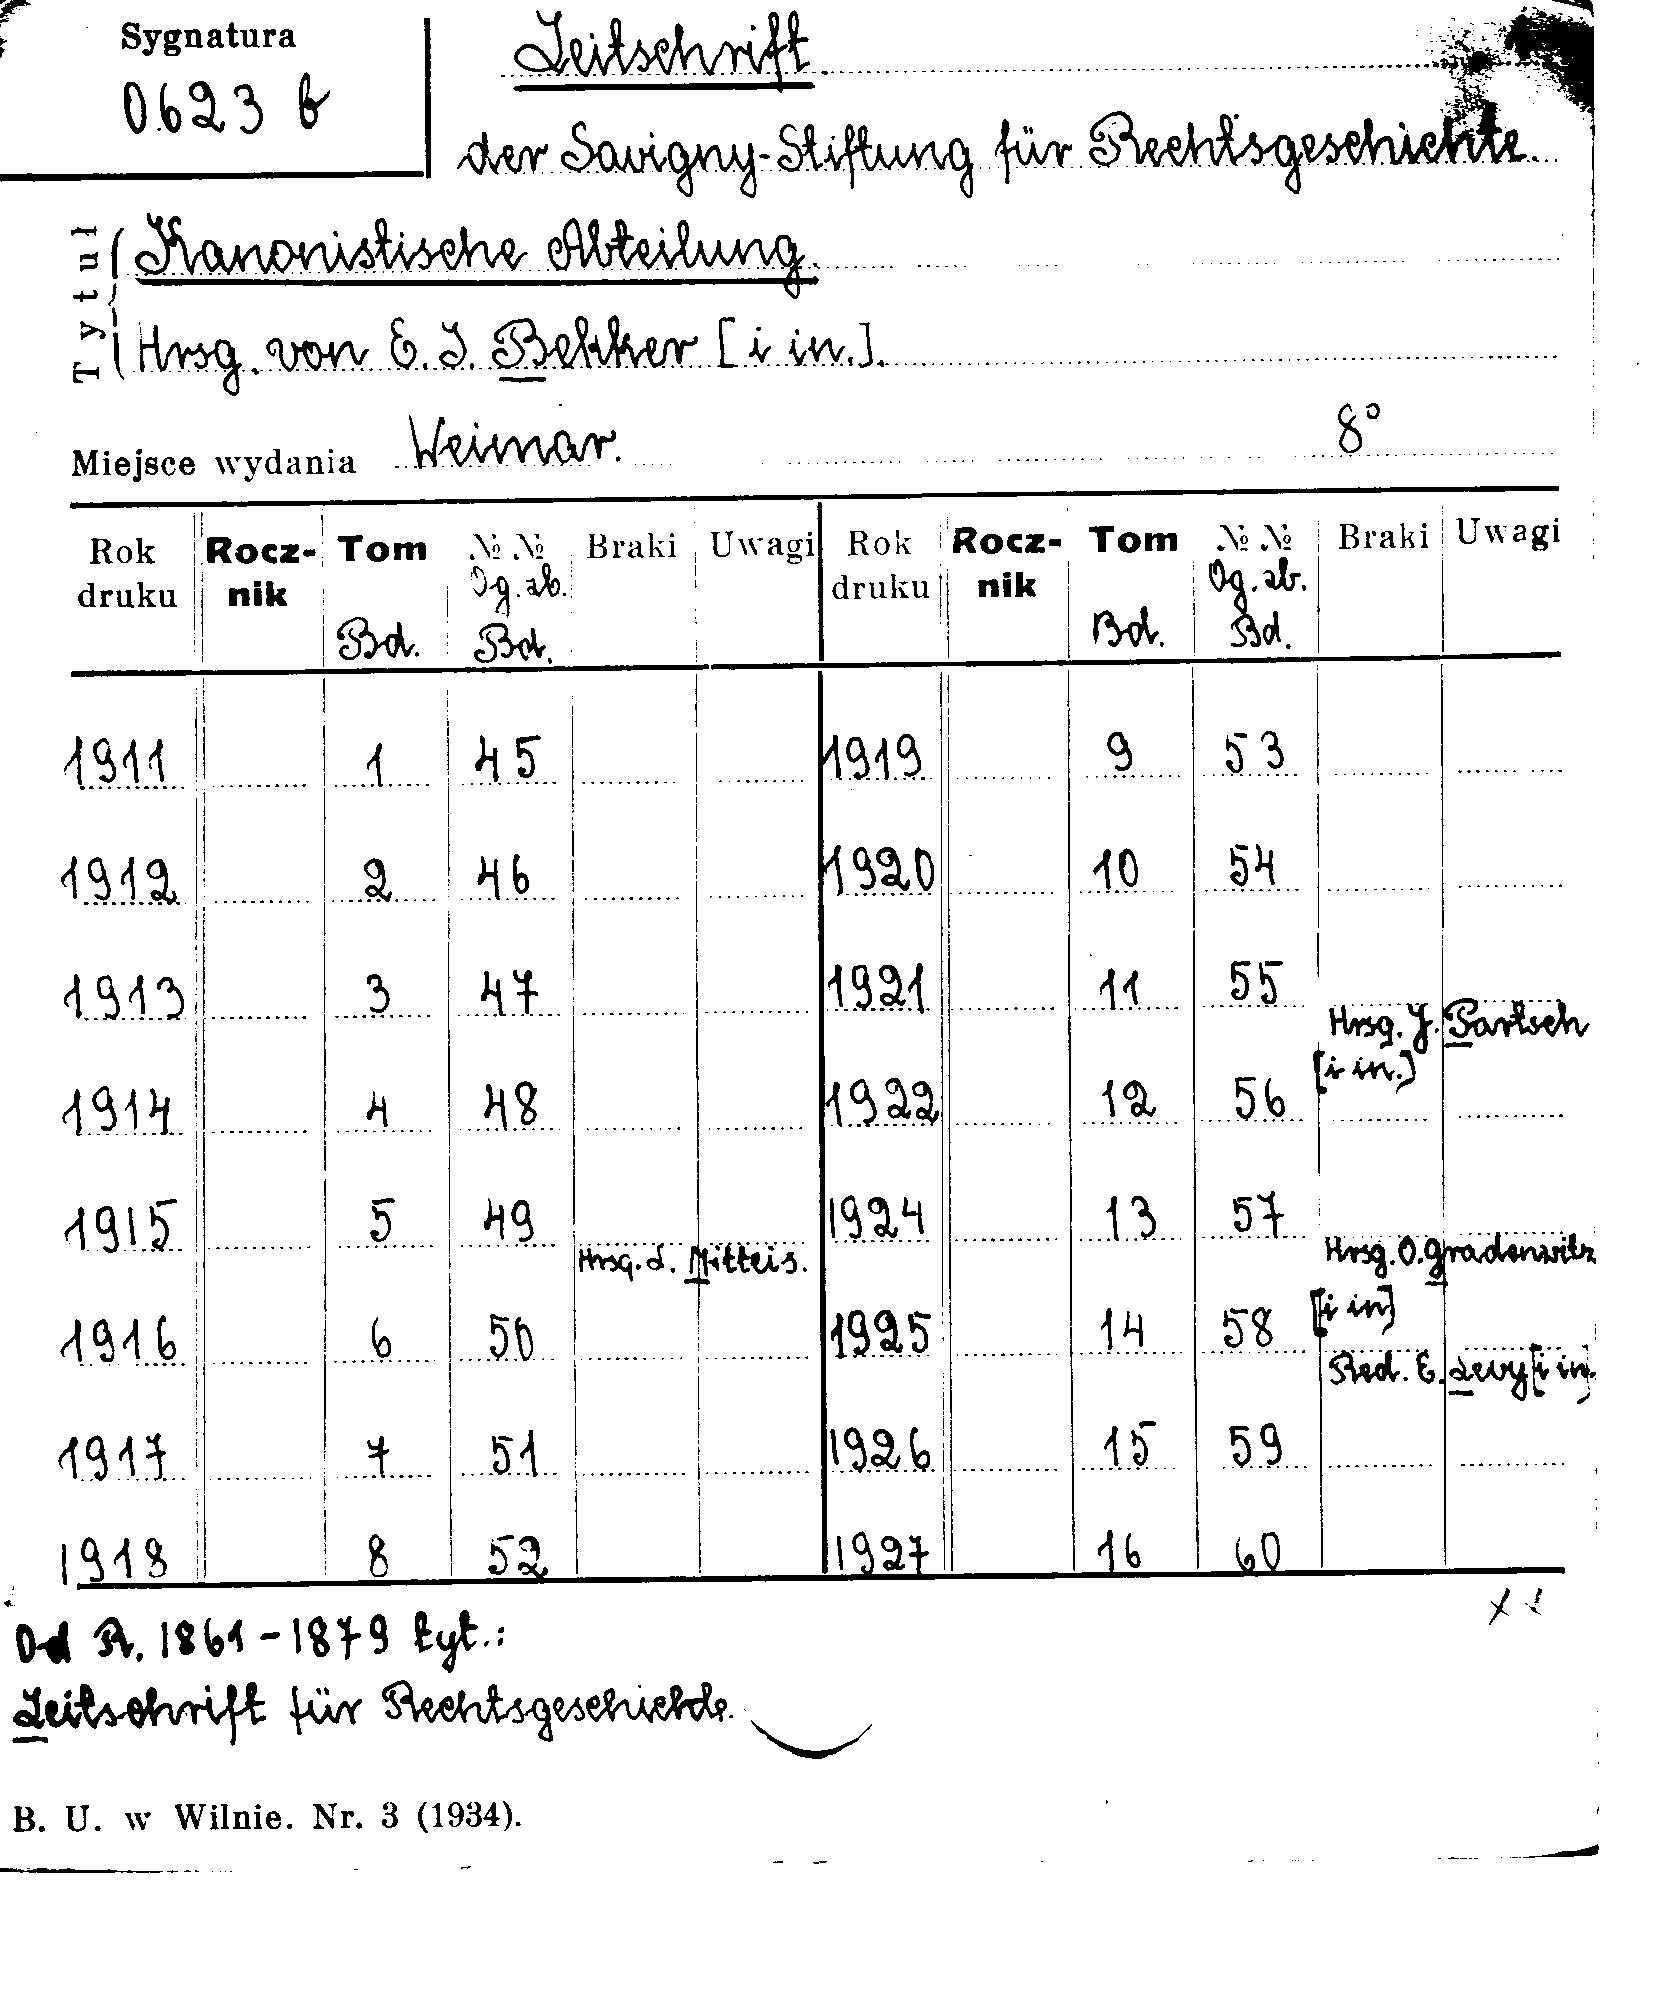 Sygnatura
0623 b
Zeitschrift.
der Savigny-Stiftung für Rechtsgeschichte.
Tytuł
Kanonistische Abteilung.
Hrsg. von E. I. Bekker [i in.].
Miejsce wydania Weimar. 8°
Rok druku Rocz-nik Tom Bd. №№ Og. zb. Bd. Braki Uwagi Rok druku Rocz-nik Tom Bd. №№ Og. zb. Bd. Braki Uwagi
1911 1 45 1919 9 53
1912 2 46 1920 10 54
1913 3 47 1921 11 55
Hrsg. J. Partsch
[i in.]
1914 4 48 1922 12 56
1915 5 49 1924 13 57
Hrsg. L. Mitteis. Hrsg. O. Gradenwitz
[i in]
1916 6 50 1925 14 58
Red. E. Levy [i in.
1917 7 51 1926 15 59
1918 8 52 1927 16 60
Od R. 1861-1879 tyt.:
Zeitschrift für Rechtsgeschichte.
B. U. w Wilnie. Nr. 3 (1934).